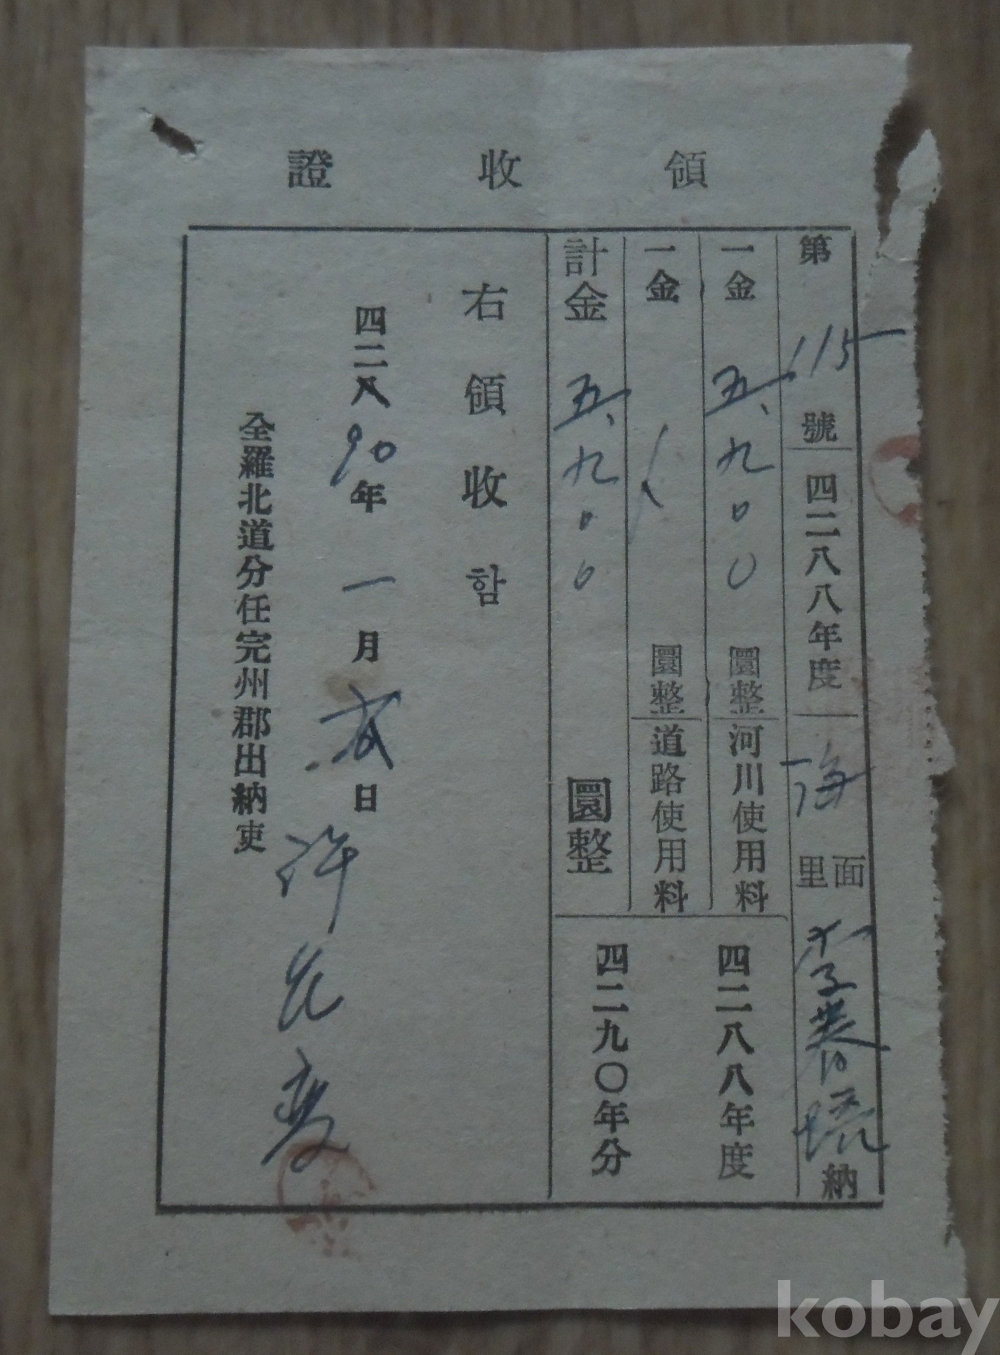 領收證
第115號 四二八八年度 海面里 李春培 納
一金 五、九00 圜整 河川使用料 四二八八年度
一金 圜整 道路使用料
計金 五、九00 圜整 四二九〇年分
右領收함
四二八90年 一月 貳日
全羅北道分任完州郡出納吏
許
kobay